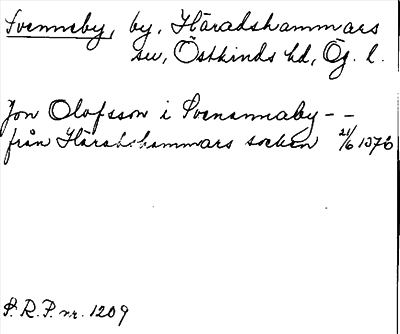 Svenneby, by, Häradshammars
sn, Östkinds hd, Ög. l.
Jon Olofsson i Svenannaby - -
från Häradshammars socken 21/6 1576
S. R. P. nr. 1209